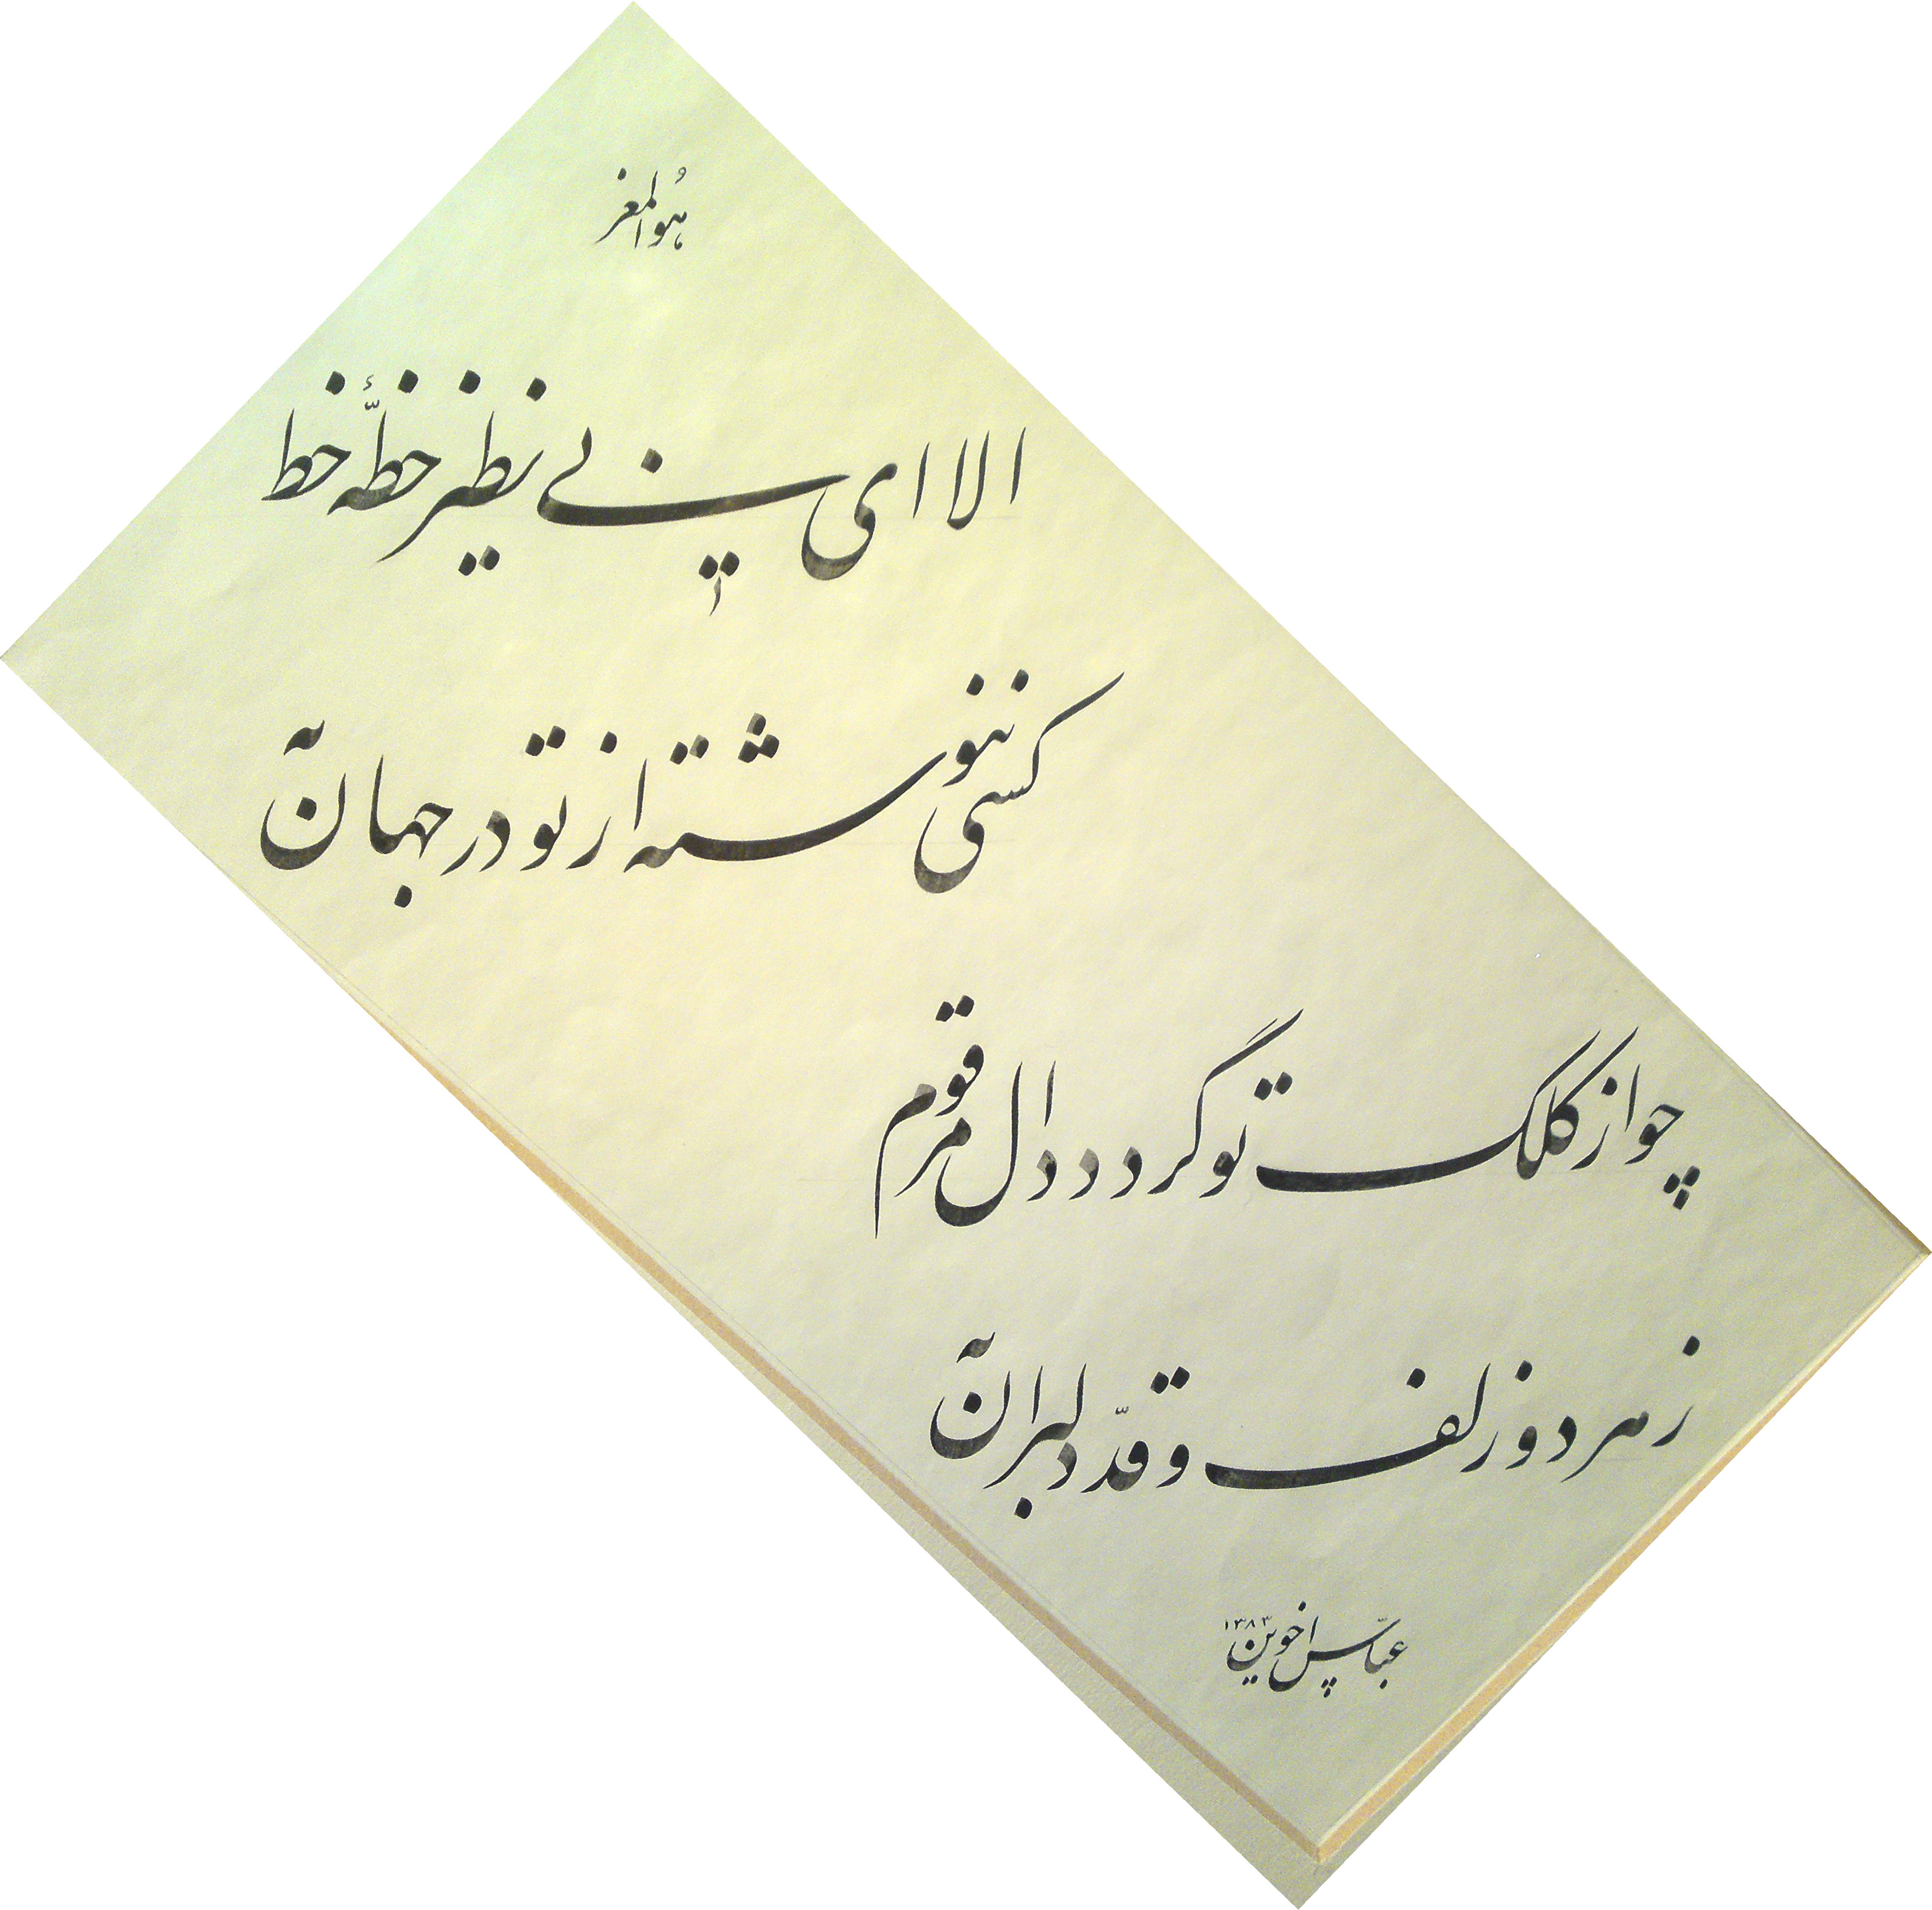 هوالمعز
الا ای بی نظیر خطّهٔ خط
کسی ننوشته از تو در جهان به
چو از کلک تو گردد دال مرقوم
ز هر دو زلف و قدّ دلبران به
عبّاس اخوین ۱۳۸۳